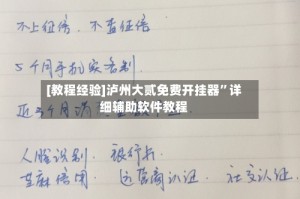 不上征信，不查征信
5个月手机实名制
[教程经验]泸州大贰免费开挂器”详
细辅助软件教程
近3个月
人脸识别 银行卡
芝麻信用 运营商认证 社交认证